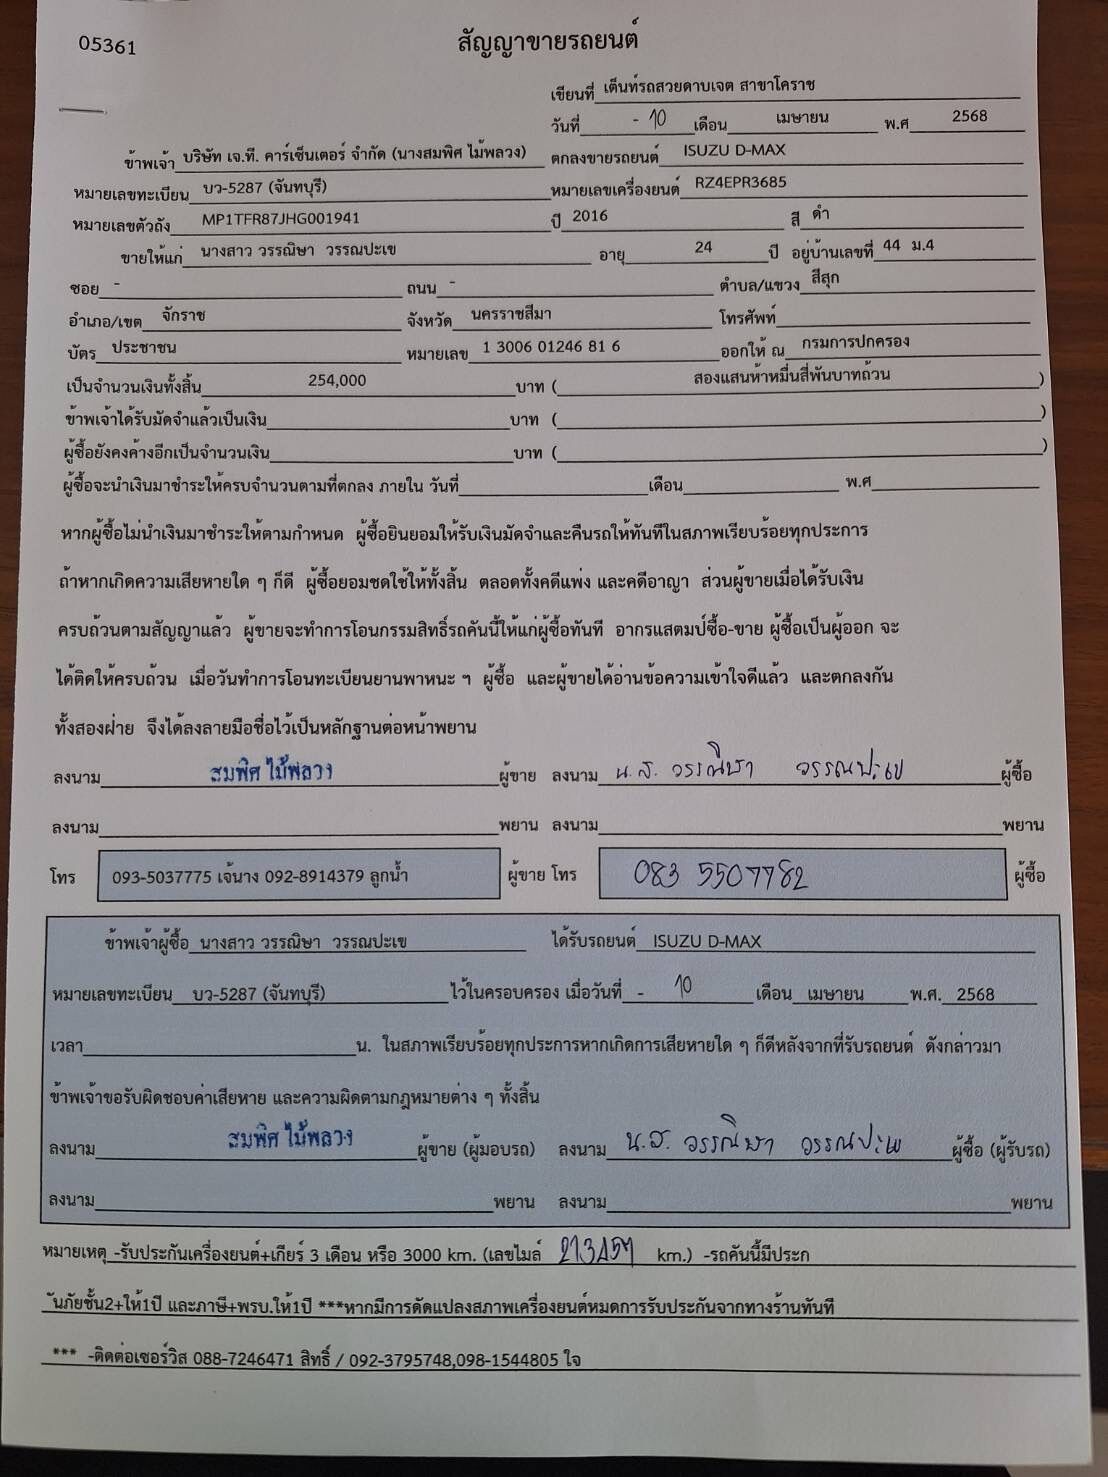 05361
สัญญาขายรถยนต์
เขียนที่ เต็นท์รถสวยดาบเจต สาขาโคราช
วันที่ - 10 เดือน เมษายน พ.ศ 2568
ข้าพเจ้า บริษัท เจ.ที. คาร์เซ็นเตอร์ จำกัด (นางสมพิศ ไม้พลวง) ตกลงขายรถยนต์ ISUZU D-MAX
หมายเลขทะเบียน บว-5287 (จันทบุรี) หมายเลขเครื่องยนต์ RZ4EPR3685
หมายเลขตัวถัง MP1TFR87JHG001941 ปี 2016 สี ดำ
ขายให้แก่ นางสาว วรรณิษา วรรณปะเข อายุ 24 ปี อยู่บ้านเลขที่ 44 ม.4
ซอย - ถนน - ตำบล/แขวง สีสุก
อำเภอ/เขต จักราช จังหวัด นครราชสีมา โทรศัพท์
บัตร ประชาชน หมายเลข 1 3006 01246 81 6 ออกให้ ณ กรมการปกครอง
เป็นจำนวนเงินทั้งสิ้น 254,000 บาท ( สองแสนห้าหมื่นสี่พันบาทถ้วน )
ข้าพเจ้าได้รับมัดจำแล้วเป็นเงิน บาท ( )
ผู้ซื้อยังคงค้างอีกเป็นจำนวนเงิน บาท ( )
ผู้ซื้อจะนำเงินมาชำระให้ครบจำนวนตามที่ตกลง ภายใน วันที่ เดือน พ.ศ
หากผู้ซื้อไม่นำเงินมาชำระให้ตามกำหนด ผู้ซื้อยินยอมให้รับเงินมัดจำและคืนรถให้ทันทีในสภาพเรียบร้อยทุกประการ
ถ้าหากเกิดความเสียหายใด ๆ ก็ดี ผู้ซื้อยอมชดใช้ให้ทั้งสิ้น ตลอดทั้งคดีแพ่ง และคดีอาญา ส่วนผู้ขายเมื่อได้รับเงิน
ครบถ้วนตามสัญญาแล้ว ผู้ขายจะทำการโอนกรรมสิทธิ์รถคันนี้ให้แก่ผู้ซื้อทันที อากรแสตมป์ซื้อ-ขาย ผู้ซื้อเป็นผู้ออก จะ
ได้ติดให้ครบถ้วน เมื่อวันทำการโอนทะเบียนยานพาหนะ ฯ ผู้ซื้อ และผู้ขายได้อ่านข้อความเข้าใจดีแล้ว และตกลงกัน
ทั้งสองฝ่าย จึงได้ลงลายมือชื่อไว้เป็นหลักฐานต่อหน้าพยาน
ลงนาม สมพิศ ไม้พลวง ผู้ขาย ลงนาม น.ส. วรรณิษา วรรณปะเข ผู้ซื้อ
ลงนาม พยาน ลงนาม พยาน
โทร 093-5037775 เจ้นาง 092-8914379 ลูกน้ำ ผู้ขาย โทร 083 5507782 ผู้ซื้อ
ข้าพเจ้าผู้ซื้อ นางสาว วรรณิษา วรรณปะเข ได้รับรถยนต์ ISUZU D-MAX
หมายเลขทะเบียน บว-5287 (จันทบุรี) ไว้ในครอบครอง เมื่อวันที่ - 10 เดือน เมษายน พ.ศ. 2568
เวลา น. ในสภาพเรียบร้อยทุกประการหากเกิดการเสียหายใด ๆ ก็ดีหลังจากที่รับรถยนต์ ดังกล่าวมา
ข้าพเจ้าขอรับผิดชอบค่าเสียหาย และความผิดตามกฎหมายต่าง ๆ ทั้งสิ้น
ลงนาม สมพิศ ไม้พลวง ผู้ขาย (ผู้มอบรถ) ลงนาม น.ส. วรรณิษา วรรณปะเข ผู้ซื้อ (ผู้รับรถ)
ลงนาม พยาน ลงนาม พยาน
หมายเหตุ -รับประกันเครื่องยนต์+เกียร์ 3 เดือน หรือ 3000 km. (เลขไมล์ km.) -รถคันนี้มีประก
ันภัยชั้น2+ให้1ปี และภาษี+พรบ.ให้1ปี ***หากมีการดัดแปลงสภาพเครื่องยนต์หมดการรับประกันจากทางร้านทันที
*** -ติดต่อเซอร์วิส 088-7246471 สิทธิ์ / 092-3795748,098-1544805 ใจ